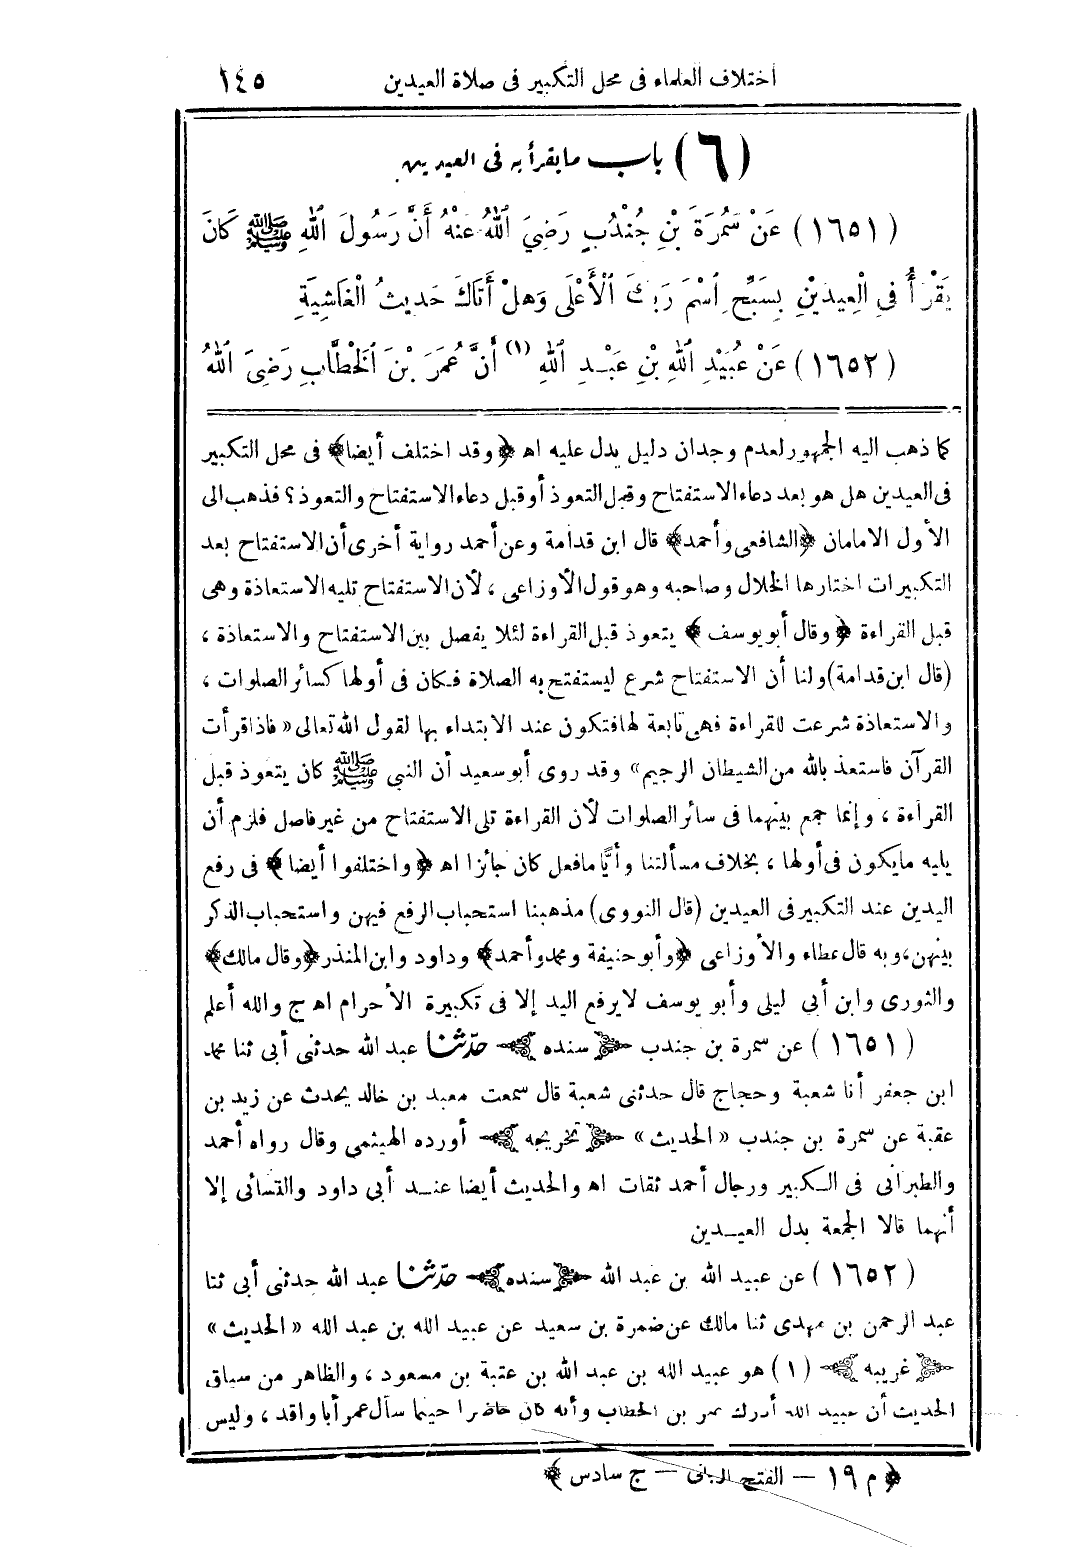 اختلاف العلماء فى محل التكبير فى صلاة العيدين ١٤٥
(٦) باب ما يقرأ به فى العيدين
(١٦٥١) عَنْ سَمُرَةَ بْنِ جُنْدُبٍ رَضِيَ اللهُ عَنْهُ أَنَّ رَسُولَ اللهِ ﷺ كَانَ
يَقْرَأُ فِي الْعِيدَيْنِ بِسَبِّحِ اسْمَ رَبِّكَ الْأَعْلَى وَهَلْ أَتَاكَ حَدِيثُ الْغَاشِيَةِ
(١٦٥٢) عَنْ عُبَيْدِ اللهِ بْنِ عَبْدِ اللهِ (١) أَنَّ عُمَرَ بْنَ الْخَطَّابِ رَضِيَ اللهُ
كما ذهب اليه الجمهور لعدم وجدان دليل يدل عليه اه ﴿وقد اختلف أيضا﴾ فى محل التكبير
فى العيدين هل هو بعد دعاء الاستفتاح وقبل التعوذ أو قبل دعاء الاستفتاح والتعوذ؟ فذهب الى
الأول الامامان ﴿الشافعى وأحمد﴾ قال ابن قدامة وعن أحمد رواية أخرى أن الاستفتاح بعد
التكبيرات اختارها الخلال وصاحبه وهو قول الأوزاعى، لأن الاستفتاح تليه الاستعاذة وهى
قبل القراءة ﴿وقال أبو يوسف﴾ يتعوذ قبل القراءة لئلا يفصل بين الاستفتاح والاستعاذة،
(قال ابن قدامة) ولنا أن الاستفتاح شرع ليستفتح به الصلاة فكان فى أولها كسائر الصلوات،
والاستعاذة شرعت للقراءة فهى تابعة لها فتكون عند الابتداء بها لقول الله تعالى «فاذا قرأت
القرآن فاستعذ بالله من الشيطان الرجيم» وقد روى أبو سعيد أن النبى ﷺ كان يتعوذ قبل
القراءة، وإنما جمع بينهما فى سائر الصلوات لأن القراءة تلى الاستفتاح من غير فاصل فلزم أن
يليه ما يكون فى أولها، بخلاف مسألتنا وأيًّا ما فعل كان جائزا اه ﴿واختلفوا أيضا﴾ فى رفع
اليدين عند التكبير فى العيدين (قال النووى) مذهبنا استحباب الرفع فيهن واستحباب الذكر
بينهن، وبه قال عطاء والأوزاعى ﴿وأبو حنيفة ومحمد وأحمد﴾ وداود وابن المنذر ﴿وقال مالك﴾
والثورى وابن أبى ليلى وأبو يوسف لا يرفع اليد إلا فى تكبيرة الأحرام اه ج والله أعلم
(١٦٥١) عن سمرة بن جندب ﴿سنده﴾ حدّثنا عبد الله حدثنى أبى ثنا محمد
ابن جعفر أنا شعبة وحجاج قال حدثنى شعبة قال سمعت معبد بن خالد يحدث عن زيد بن
عقبة عن سمرة بن جندب «الحديث» ﴿تخريجه﴾ أورده الهيثمى وقال رواه أحمد
والطبرانى فى الكبير ورجال أحمد ثقات اه والحديث أيضا عند أبى داود والنسائى إلا
أنهما قالا الجمعة بدل العيدين
(١٦٥٢) عن عبيد الله بن عبد الله ﴿سنده﴾ حدّثنا عبد الله حدثنى أبى ثنا
عبد الرحمن بن مهدى ثنا مالك عن ضمرة بن سعيد عن عبيد الله بن عبد الله «الحديث»
﴿غريبه﴾ (١) هو عبيد الله بن عبد الله بن عتبة بن مسعود، والظاهر من سياق
الحديث أن عبيد الله أدرك عمر بن الخطاب وأنه كان حاضرا حينما سأل عمر أبا واقد، وليس
﴿م ١٩ — الفتح الربانى — ج سادس﴾